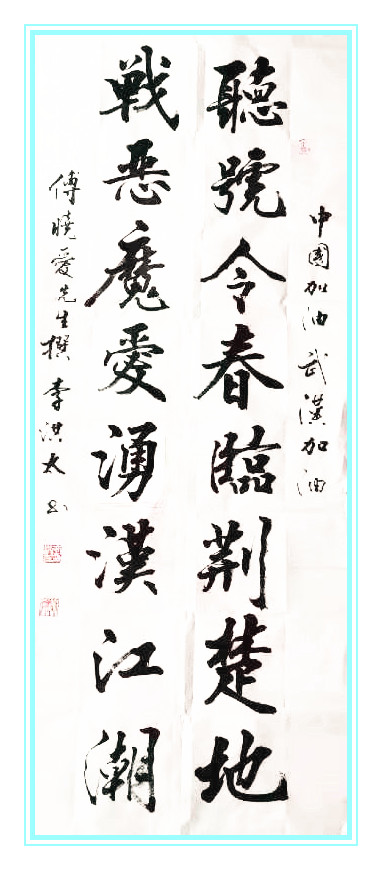 中國加油 武漢加油
聽號令春臨荆楚地
戰惡魔愛湧漢江潮
傅曉愛先生撰 李洪太书